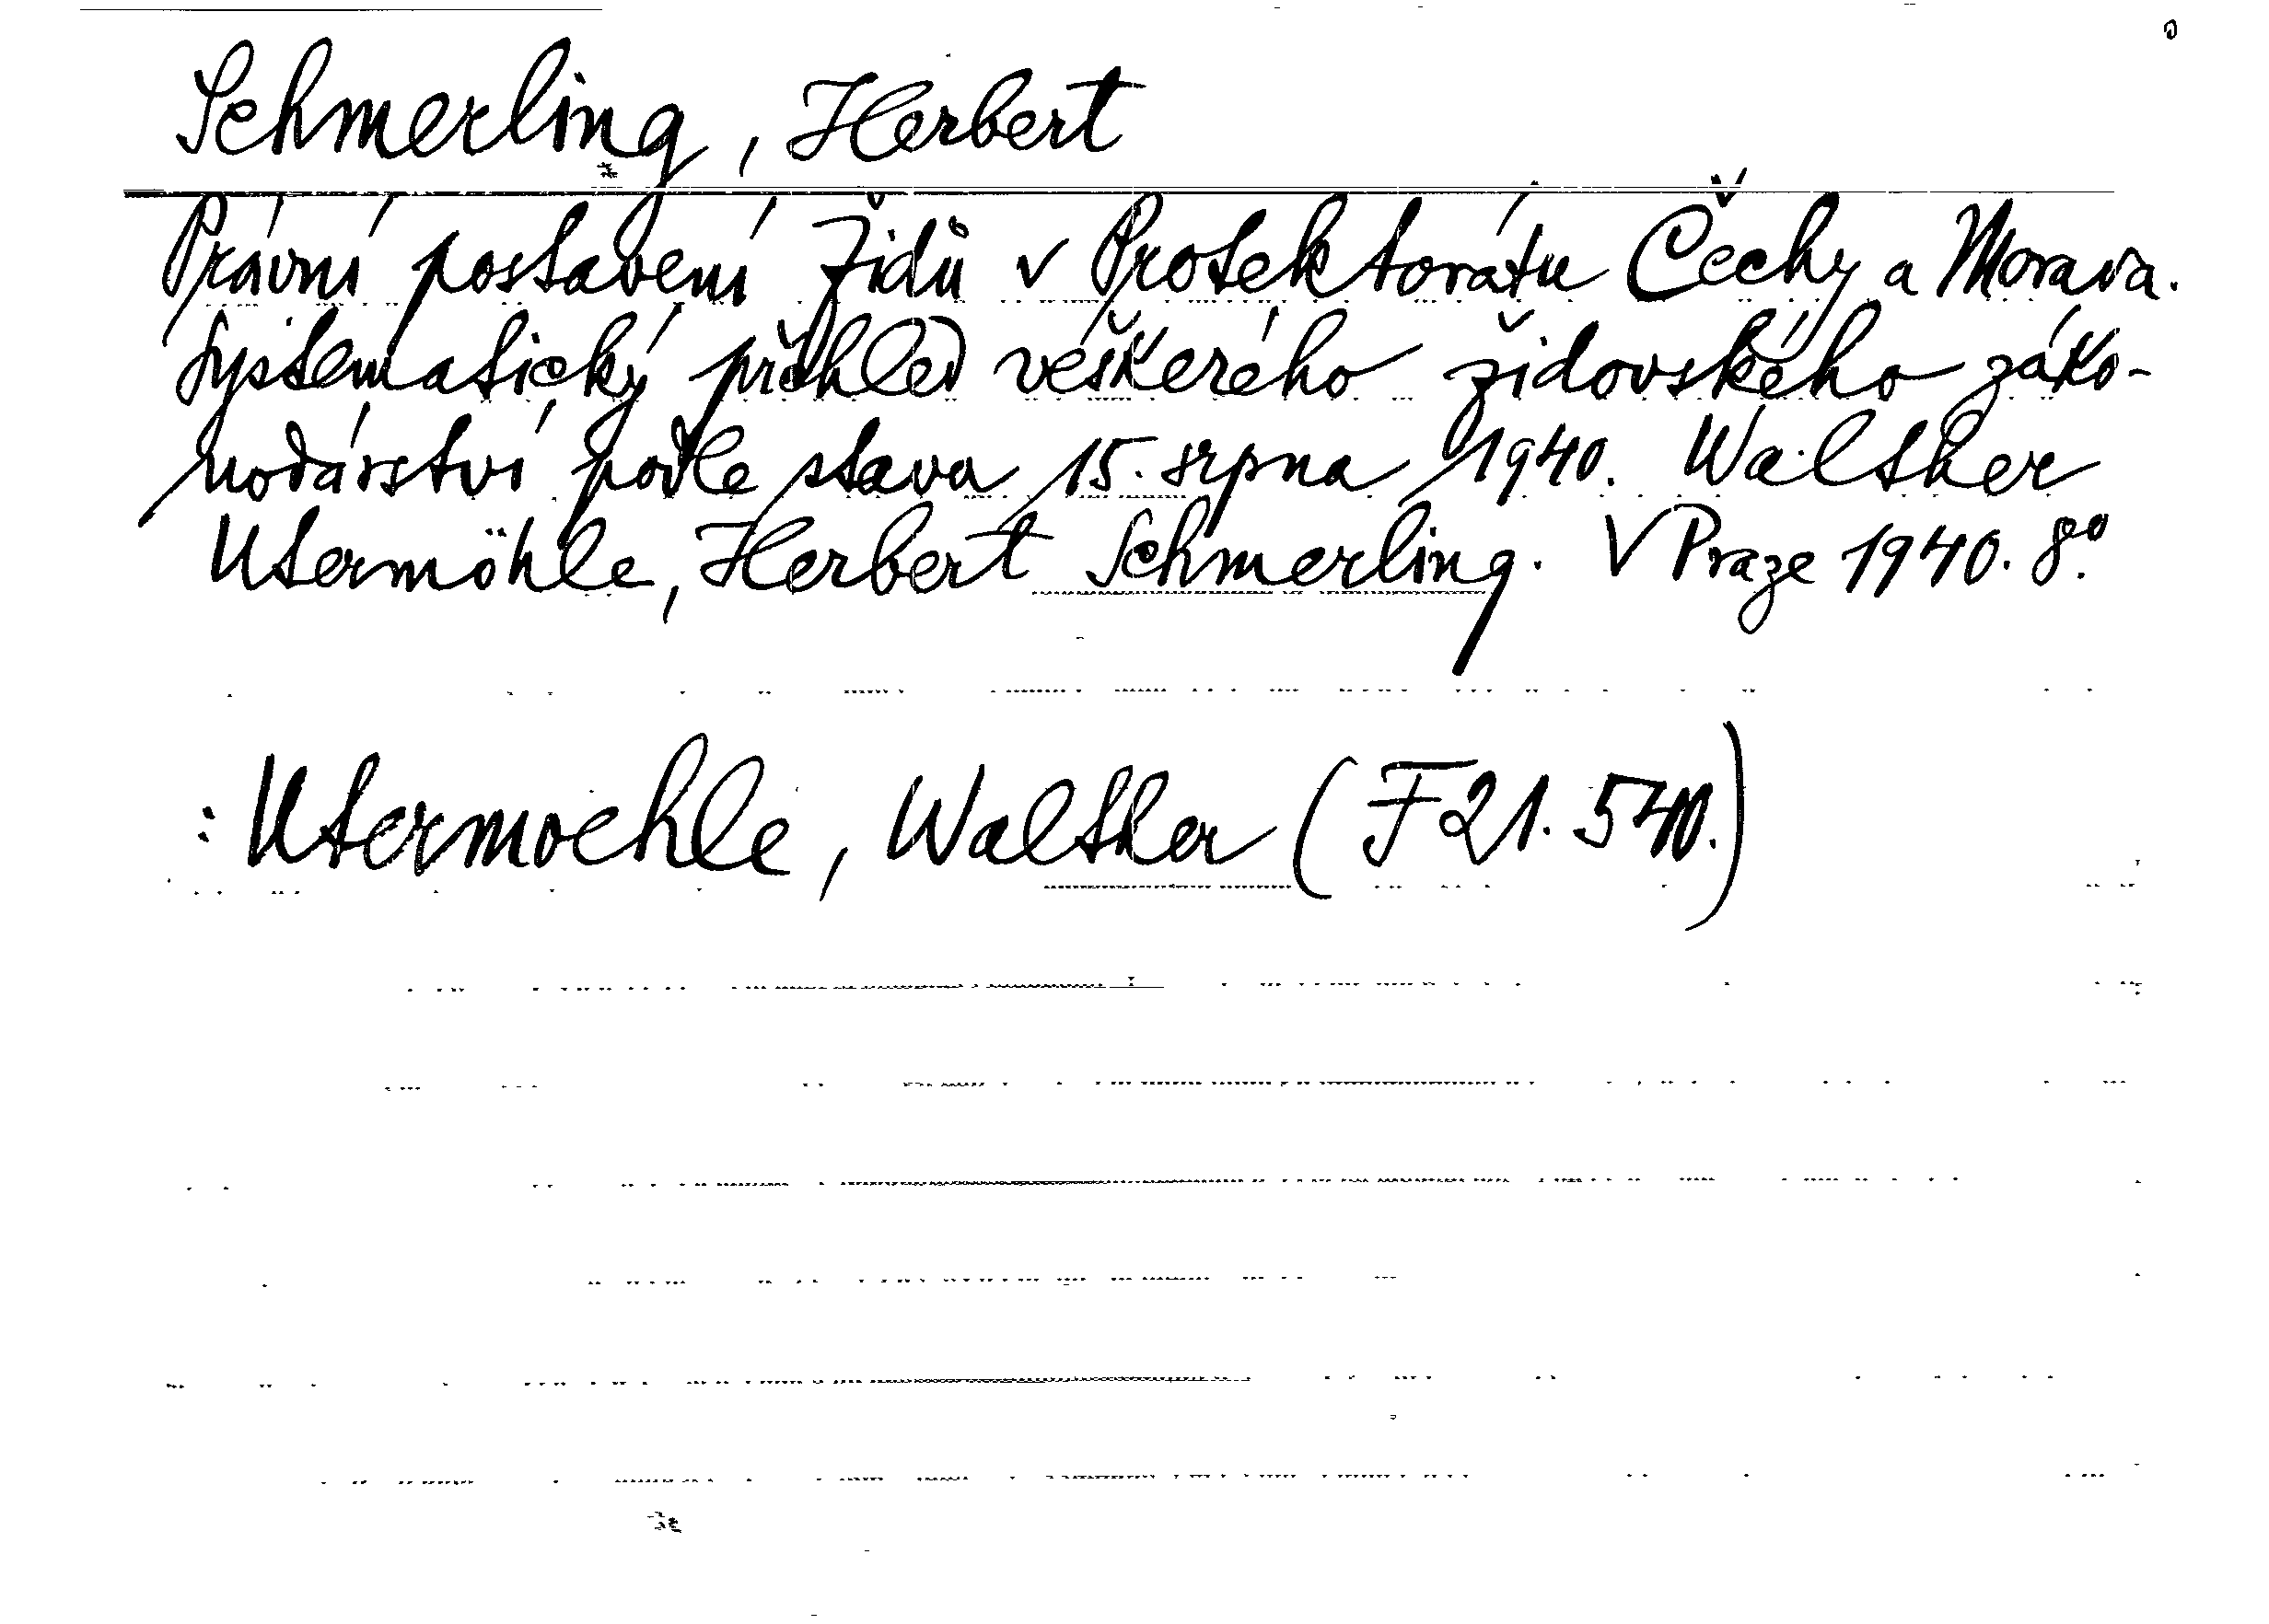 Schmerling, Herbert
Právní postavení Židů v Protektorátu Čechy a Morava.
Systematický přehled veškerého židovského záko-
nodárství podle stavu 15. srpna 1940. Walther
Utermöhle, Herbert Schmerling. V Praze 1940. 8°.
: Utermoehle, Walther (F 21.540.)